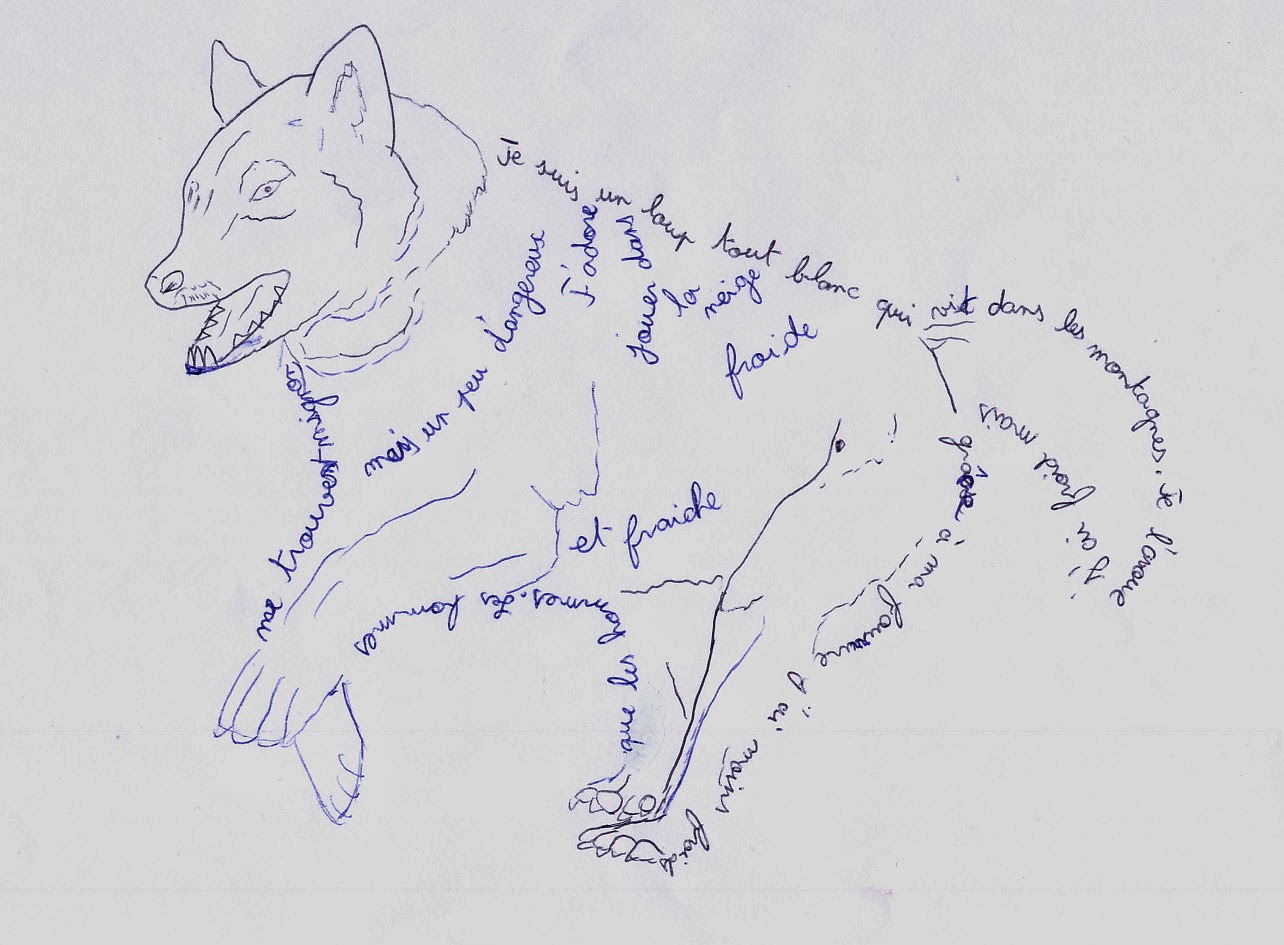 Je suis un loup tout blanc qui vit dans les montagnes. Je l'avoue
j'ai froid mais
grâce à ma fourrure j'ai moins froid
que les hommes. Les hommes
me trouvent mignon
mais un peu dangereux
J'adore
jouer dans
la neige
froide
et fraiche